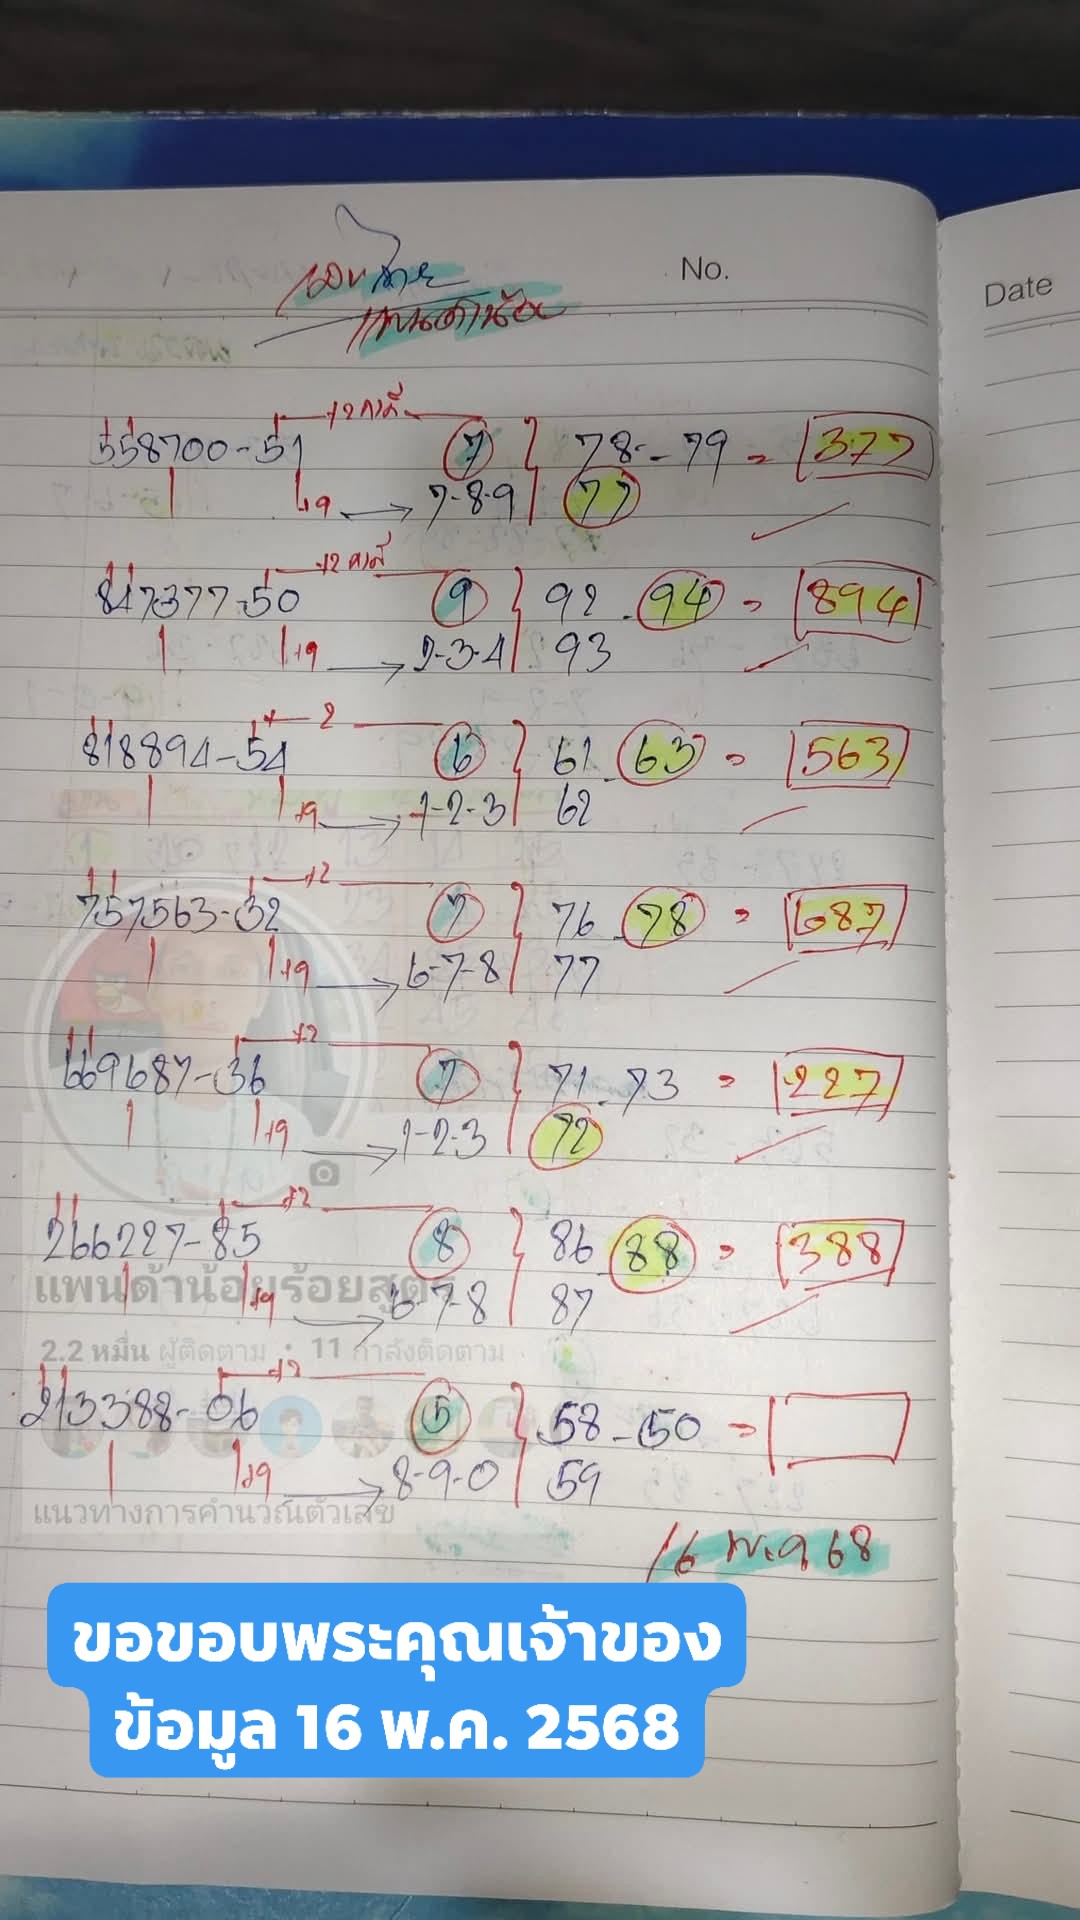 No.
Date
แพนด้าน้อย
+2 คงที่
558700-51 7 78-79 = 377
+9 → 7-8-9 77
+2 คงที่
847377-50 9 92-94 = 894
+9 → 2-3-4 93
+2
818894-54 6 61-63 = 563
+9 → 1-2-3 62
+2
757563-32 7 76-78 = 687
+9 → 6-7-8 77
+2
669687-36 7 71-73 = 227
+9 → 1-2-3 72
+2
266227-85 8 86-88 = 388
แพนด้าน้อยร้อยสูตร
+9 → 6-7-8 87
2.2 หมื่น ผู้ติดตาม · 11 กำลังติดตาม
+2
213388-06 5 58-50 =
+9 → 8-9-0 59
แนวทางการคำนวณตัวเลข
16 พ.ค 68
ขอขอบพระคุณเจ้าของ
ข้อมูล 16 พ.ค. 2568